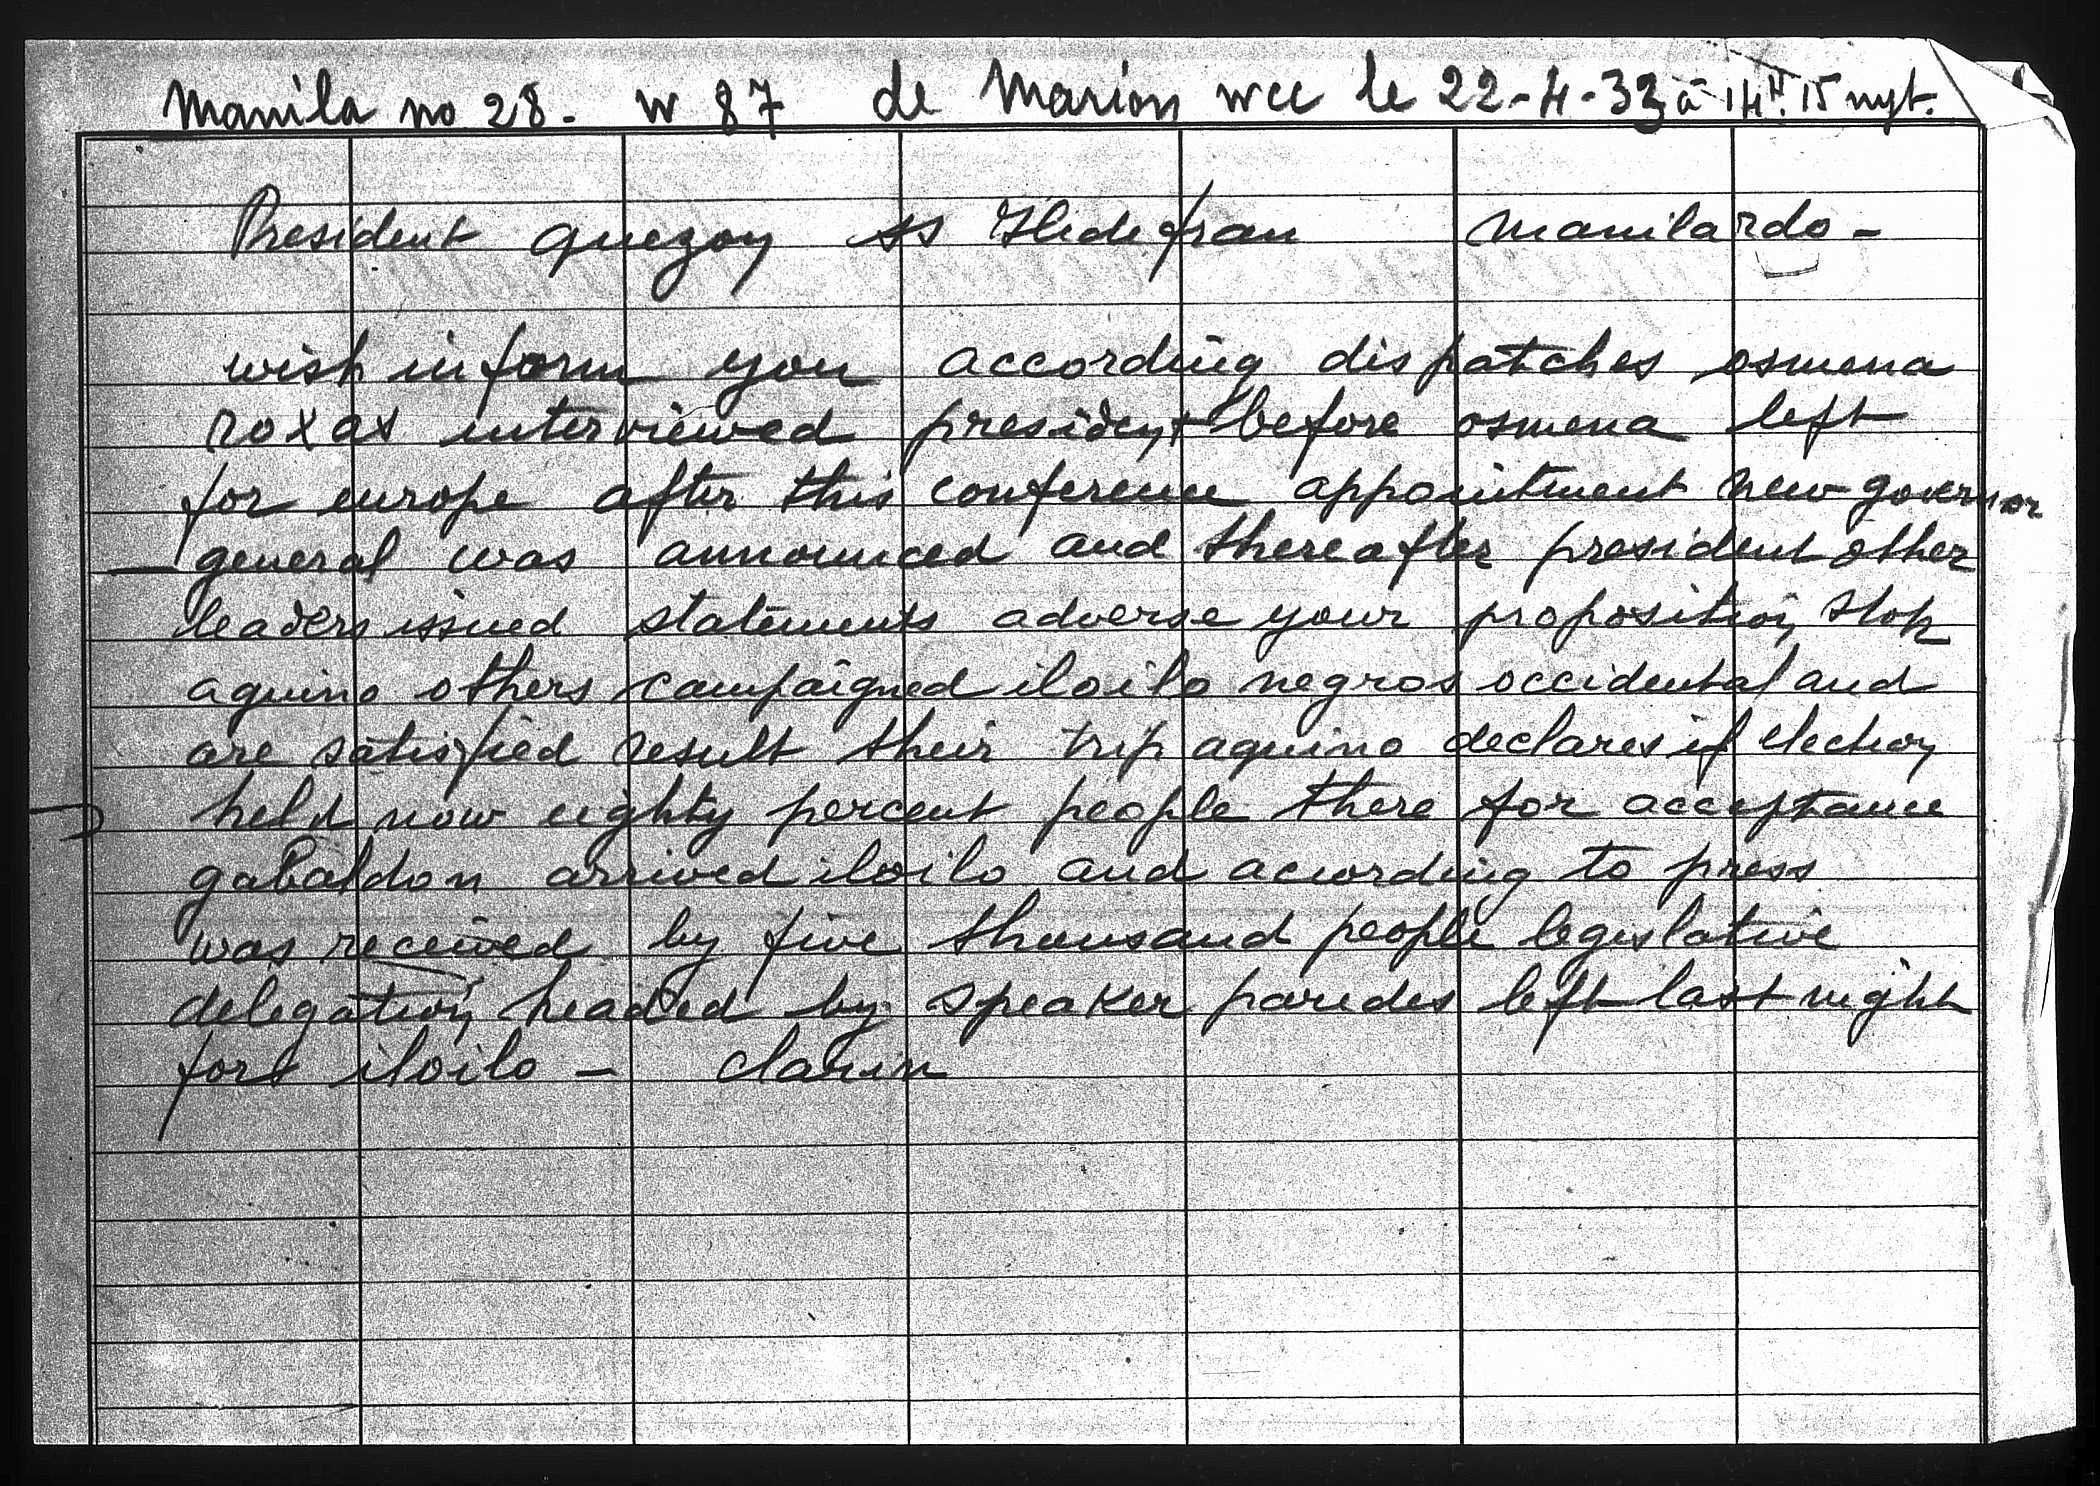 Manila no 28. w 87 de Marion wcc le 22-4-33 à 14H.15 nyt.
President quezon ss Iledefran manilardo-
wish inform you according dispatches osmena
roxas interviewed president before osmena left
for europe after this conference appointment new governor
general was announced and thereafter president other
leaders issued statements adverse your proposition stop
aquino others campaigned iloilo negros occidental and
are satisfied result their trip aquino declares if election
held now eighty percent people there for acceptance
gabaldon arrived iloilo and acwording to press
was received by five thousand people legislative
delegation headed by speaker paredes left last night
for iloilo - clarin